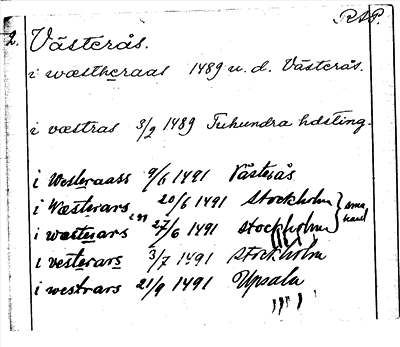 RAP.
2. Västerås.
i wæstheraas 1489 u. d. Västerås.
i væstras 3/2 1489 Tuhundra hdsting.
i Westeraass 9/6 1491 Västerås
i Wæsterars 20/6 1491 Stockholm
i wæsterars 27/6 1491 Stockholm
i vesterars 3/7 1491 Stockholm
i westrars 21/9 1491 Upsala